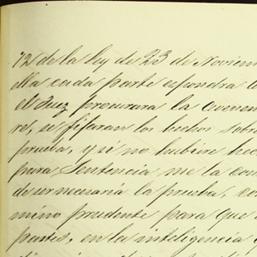 72 de la ley de 23 de Noviem
ella cada parte espondra l
el Juez procurara la aven
res, se fijaran los hechos sobre
prueba, y si no hubiere hec
para Sentencia, me la con
de ser necesaria la prueba, co
mino prudente para que
partes, en la inteligencia